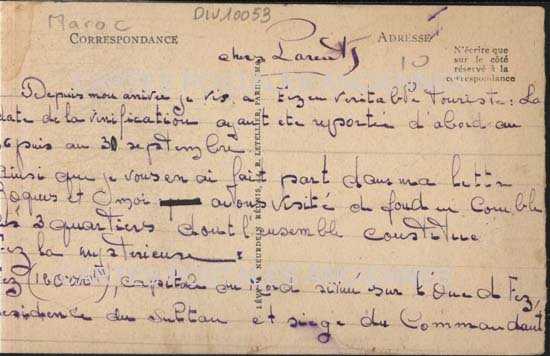 Maroc
DIV10053
CORRESPONDANCE
ADRESSE
10
N'écrire que
sur le côté
réservé à la
correspondance
chers Parents
Depuis mon arrivée je vis, à Fez en véritable touriste : La
date de la vérification ayant été reportée d'abord au
puis au 30 septembre
ainsi que je vous en ai fait part dans ma lettre
Roques et moi avons visité de fond en comble
les 3 quartiers dont l'ensemble constitue
Fez la mystérieuse.
Fez capitale du Nord située sur l'Oued Fez,
résidence du Sultan et siège du Commandant
LÉVY & NEURDEIN RÉUNIS, 44, R. LETELLIER, PARIS